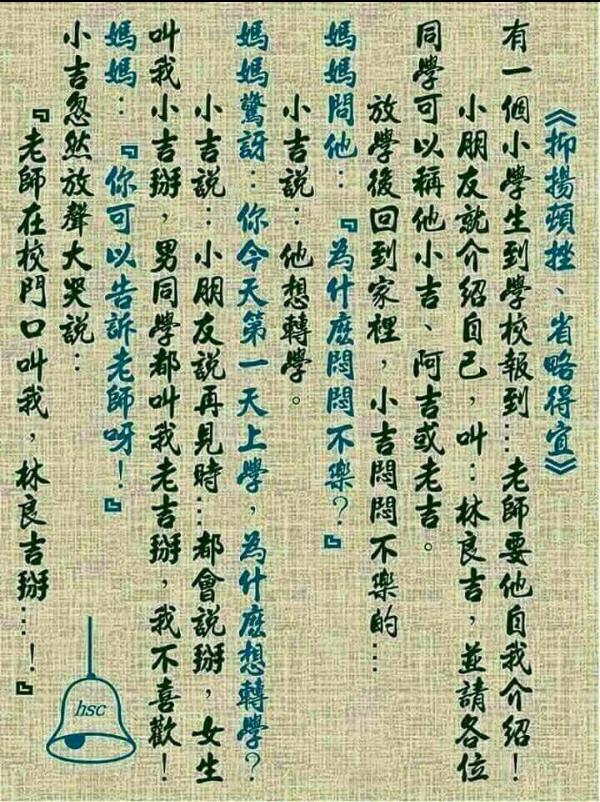 《抑揚頓挫、省略得宜》
有一個小學生到學校報到…老師要他自我介紹！
小朋友就介紹自己，叫：林良吉，並請各位
同學可以稱他小吉、阿吉或老吉。
放學後回到家裡，小吉悶悶不樂的…
媽媽問他：『為什麼悶悶不樂？』
小吉說：他想轉學。
媽媽驚訝：你今天第一天上學，為什麼想轉學？
小吉說：小朋友說再見時…都會說掰，女生
叫我小吉掰，男同學都叫我老吉掰，我不喜歡！
媽媽：『你可以告訴老師呀！』
小吉忽然放聲大哭說：
『老師在校門口叫我，林良吉掰…！』
hsc